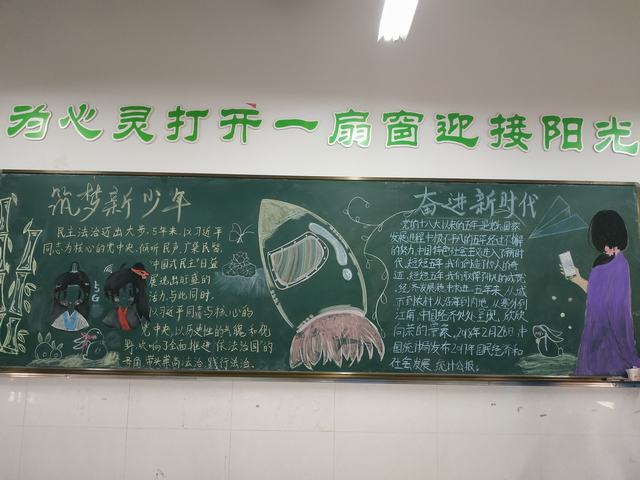 为心灵打开一扇窗迎接阳光
筑梦新少年
民主法治迈出大步。5年来,以习近平
同志为核心的党中央,倾听民声,汇集民智,
"中国式民主"日益
展现出旺盛的
活力。与此同时,
以习近平同志为核心的
党中央,以历史性的
吹响了全面推进"依法治国"的
号角,带头崇尚法治、践行法治。
奋进新时代
党的十八大以来的五年,是党和国家
发展进程中极不平凡的五年,经过不懈
的努力,中国特色社会主义进入了新时
五年来,从城
市到农村,从沿海到内地,从塞外到
江南,中国经济处处呈现,欣欣
向荣的景象。2018年2月28日,中
国统计局发布2017年国民经济和
社会发展统计公报。